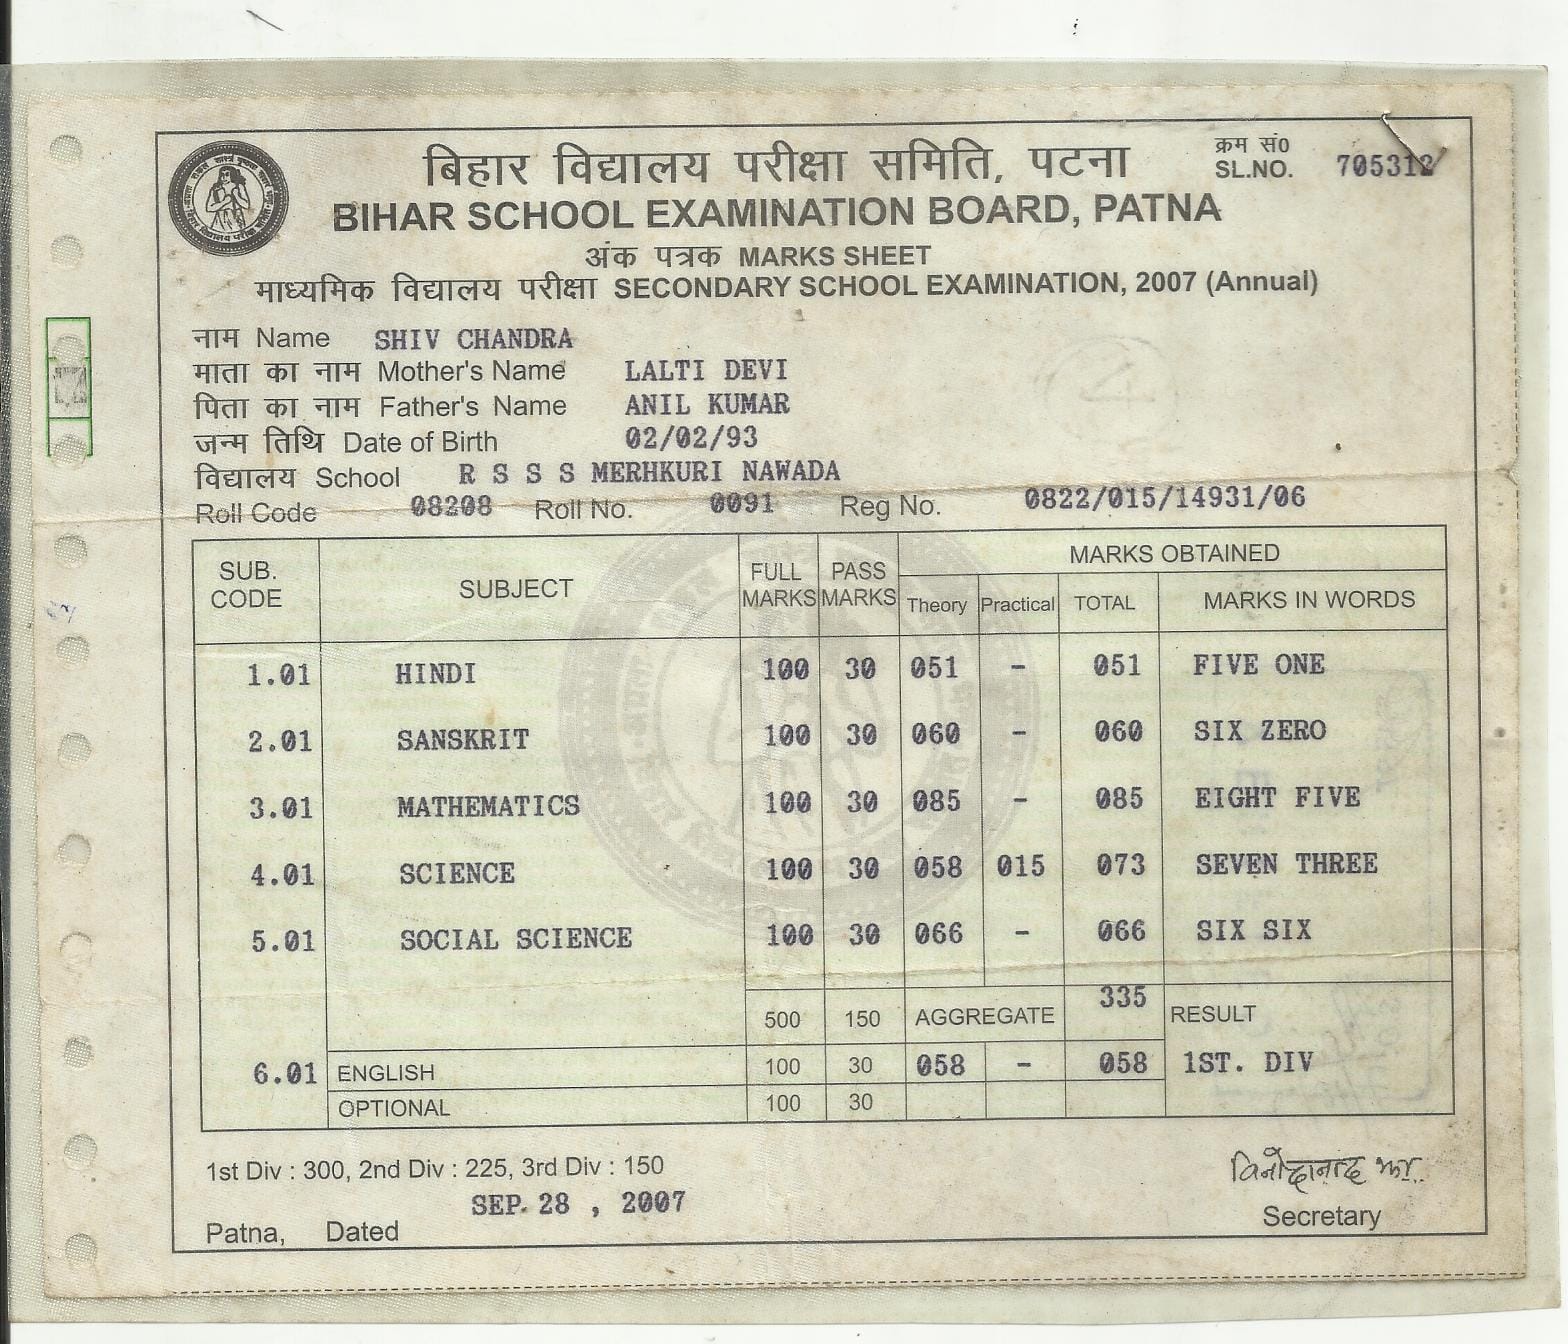 बिहार विद्यालय परीक्षा समिति, पटना
क्रम सं0
SL.NO. 705312
BIHAR SCHOOL EXAMINATION BOARD, PATNA
अंक पत्रक MARKS SHEET
माध्यमिक विद्यालय परीक्षा SECONDARY SCHOOL EXAMINATION, 2007 (Annual)
नाम Name SHIV CHANDRA
माता का नाम Mother's Name LALTI DEVI
पिता का नाम Father's Name ANIL KUMAR
जन्म तिथि Date of Birth 02/02/93
विद्यालय School R S S S MERHKURI NAWADA
Roll Code 08208 Roll No. 0091 Reg No. 0822/015/14931/06
SUB. CODE SUBJECT FULL MARKS PASS MARKS MARKS OBTAINED
Theory Practical TOTAL MARKS IN WORDS
1.01 HINDI 100 30 051 - 051 FIVE ONE
2.01 SANSKRIT 100 30 060 - 060 SIX ZERO
3.01 MATHEMATICS 100 30 085 - 085 EIGHT FIVE
4.01 SCIENCE 100 30 058 015 073 SEVEN THREE
5.01 SOCIAL SCIENCE 100 30 066 - 066 SIX SIX
500 150 AGGREGATE 335 RESULT
6.01 ENGLISH 100 30 058 - 058 1ST. DIV
OPTIONAL 100 30
1st Div : 300, 2nd Div : 225, 3rd Div : 150
SEP. 28 , 2007
Patna, Dated
विनोदानन्द झा
Secretary